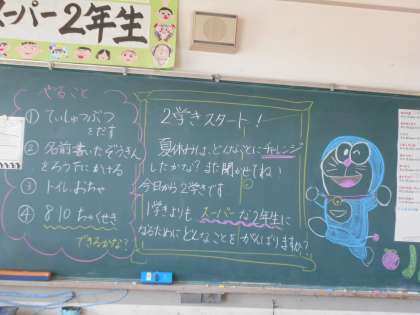 スーパー2年生
やること
① ていしゅつぶつ
をだす
② 名前書いたぞうきん
をろうかにかける
③ トイレ、おちゃ
④ 810ちゃくせき
できるかな?
2学きスタート!
夏休みは、どんなことにチャレンジ
したかな?また聞かせてね!
今日から2学きです
1学きよりも スーパーな2年生に
なるためにどんなことをがんばりますか?